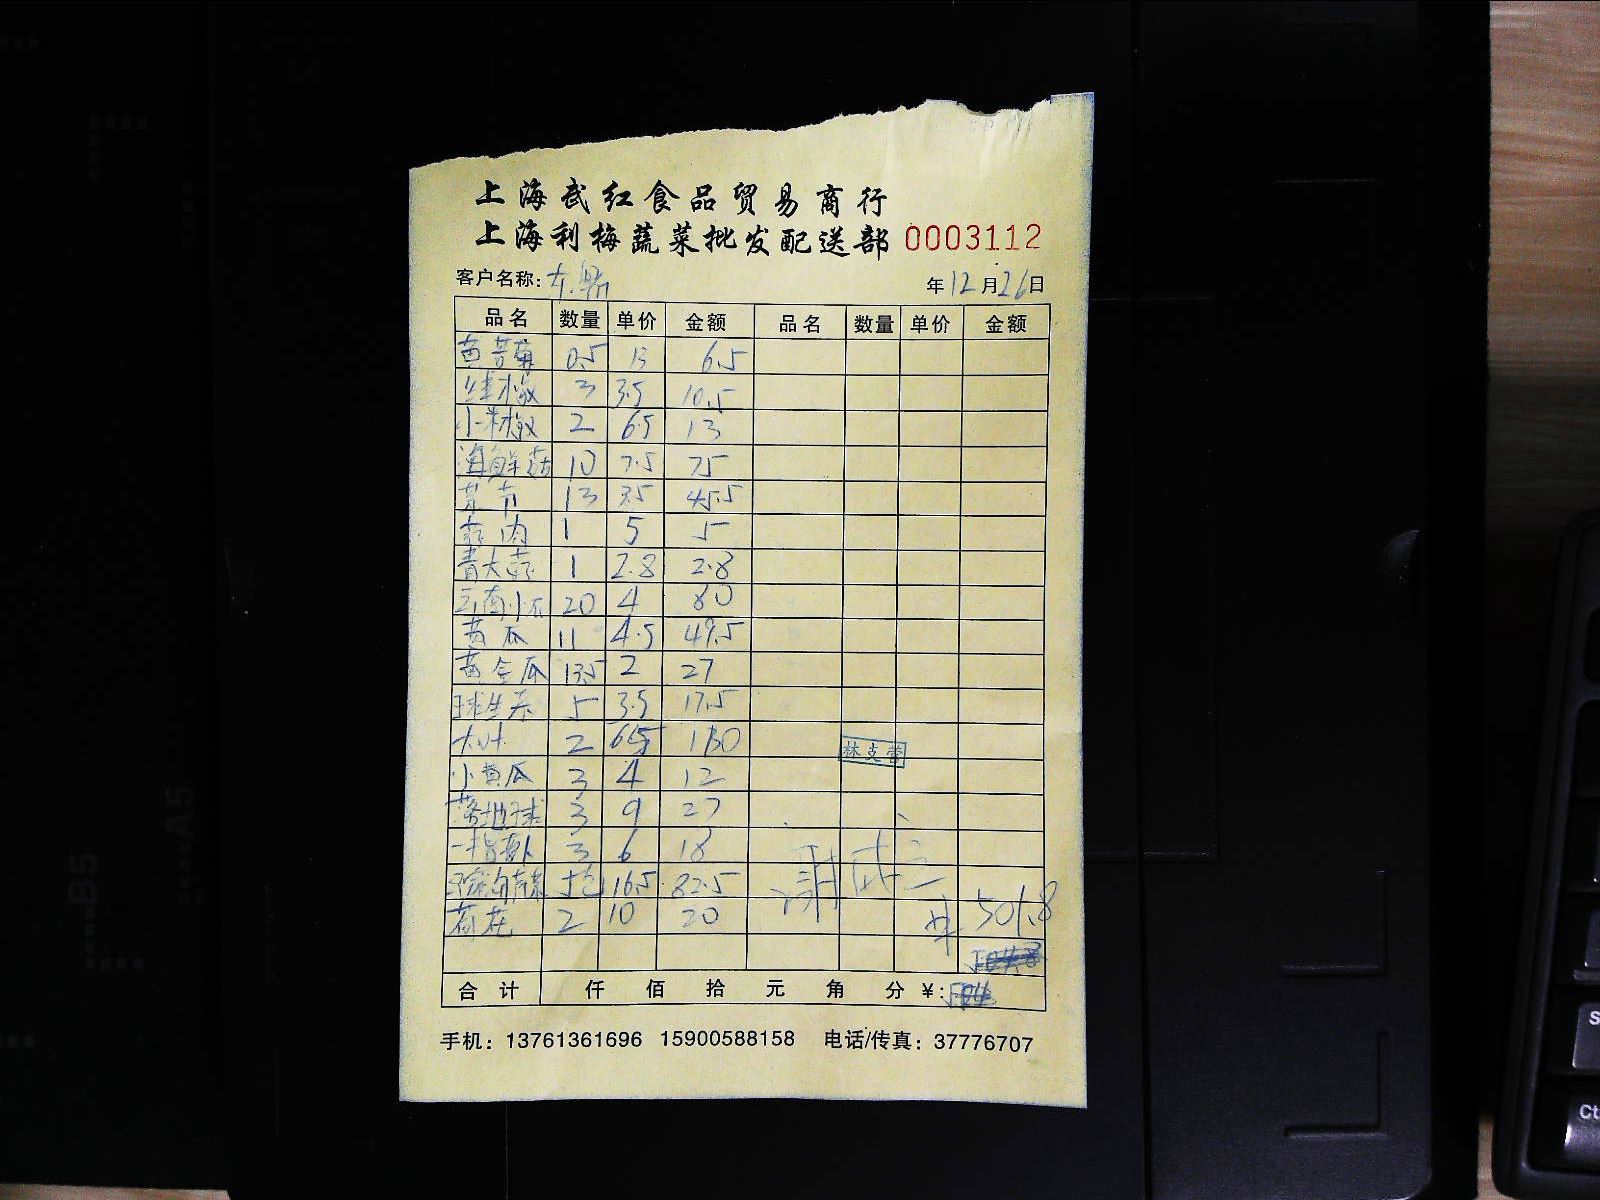 上海武红食品贸易商行
上海利梅蔬菜批发配送部 0003112
客户名称: 年12月26日
品名 数量 单价 金额 品名 数量 单价 金额
0.5 13 6.5
3 3.5 10.5
小米椒 2 6.5 13
海鲜菇 10 7.5 75
13 3.5 45.5
1 5 5
青大 1 2.8 2.8
云南小瓜 20 4 80
黄瓜 11 4.5 49.5
黄金瓜 13.5 2 27
球生菜 5 3.5 17.5
大叶 2 65 130
小黄瓜 3 4 12
落地球 3 9 27
3 6 18
16.5 82.5
荷花 2 10 20
林支营
501.8
合计 仟 佰 拾 元 角 分 ¥:
手机: 13761361696 15900588158 电话/传真: 37776707